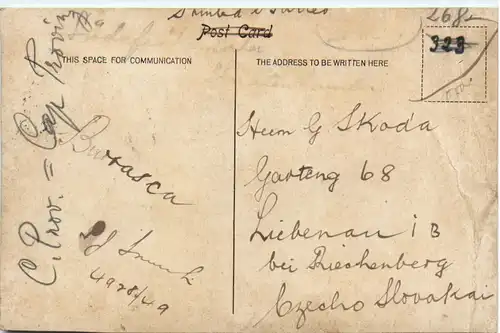 268-
Post Card
323
THIS SPACE FOR COMMUNICATION
THE ADDRESS TO BE WRITTEN HERE
C. Prov. = Cap Provinz
Burrasca
Herrn G Skoda
Garteng 68
Liebenau i B
bei Riechenberg
Czecho Slovakai